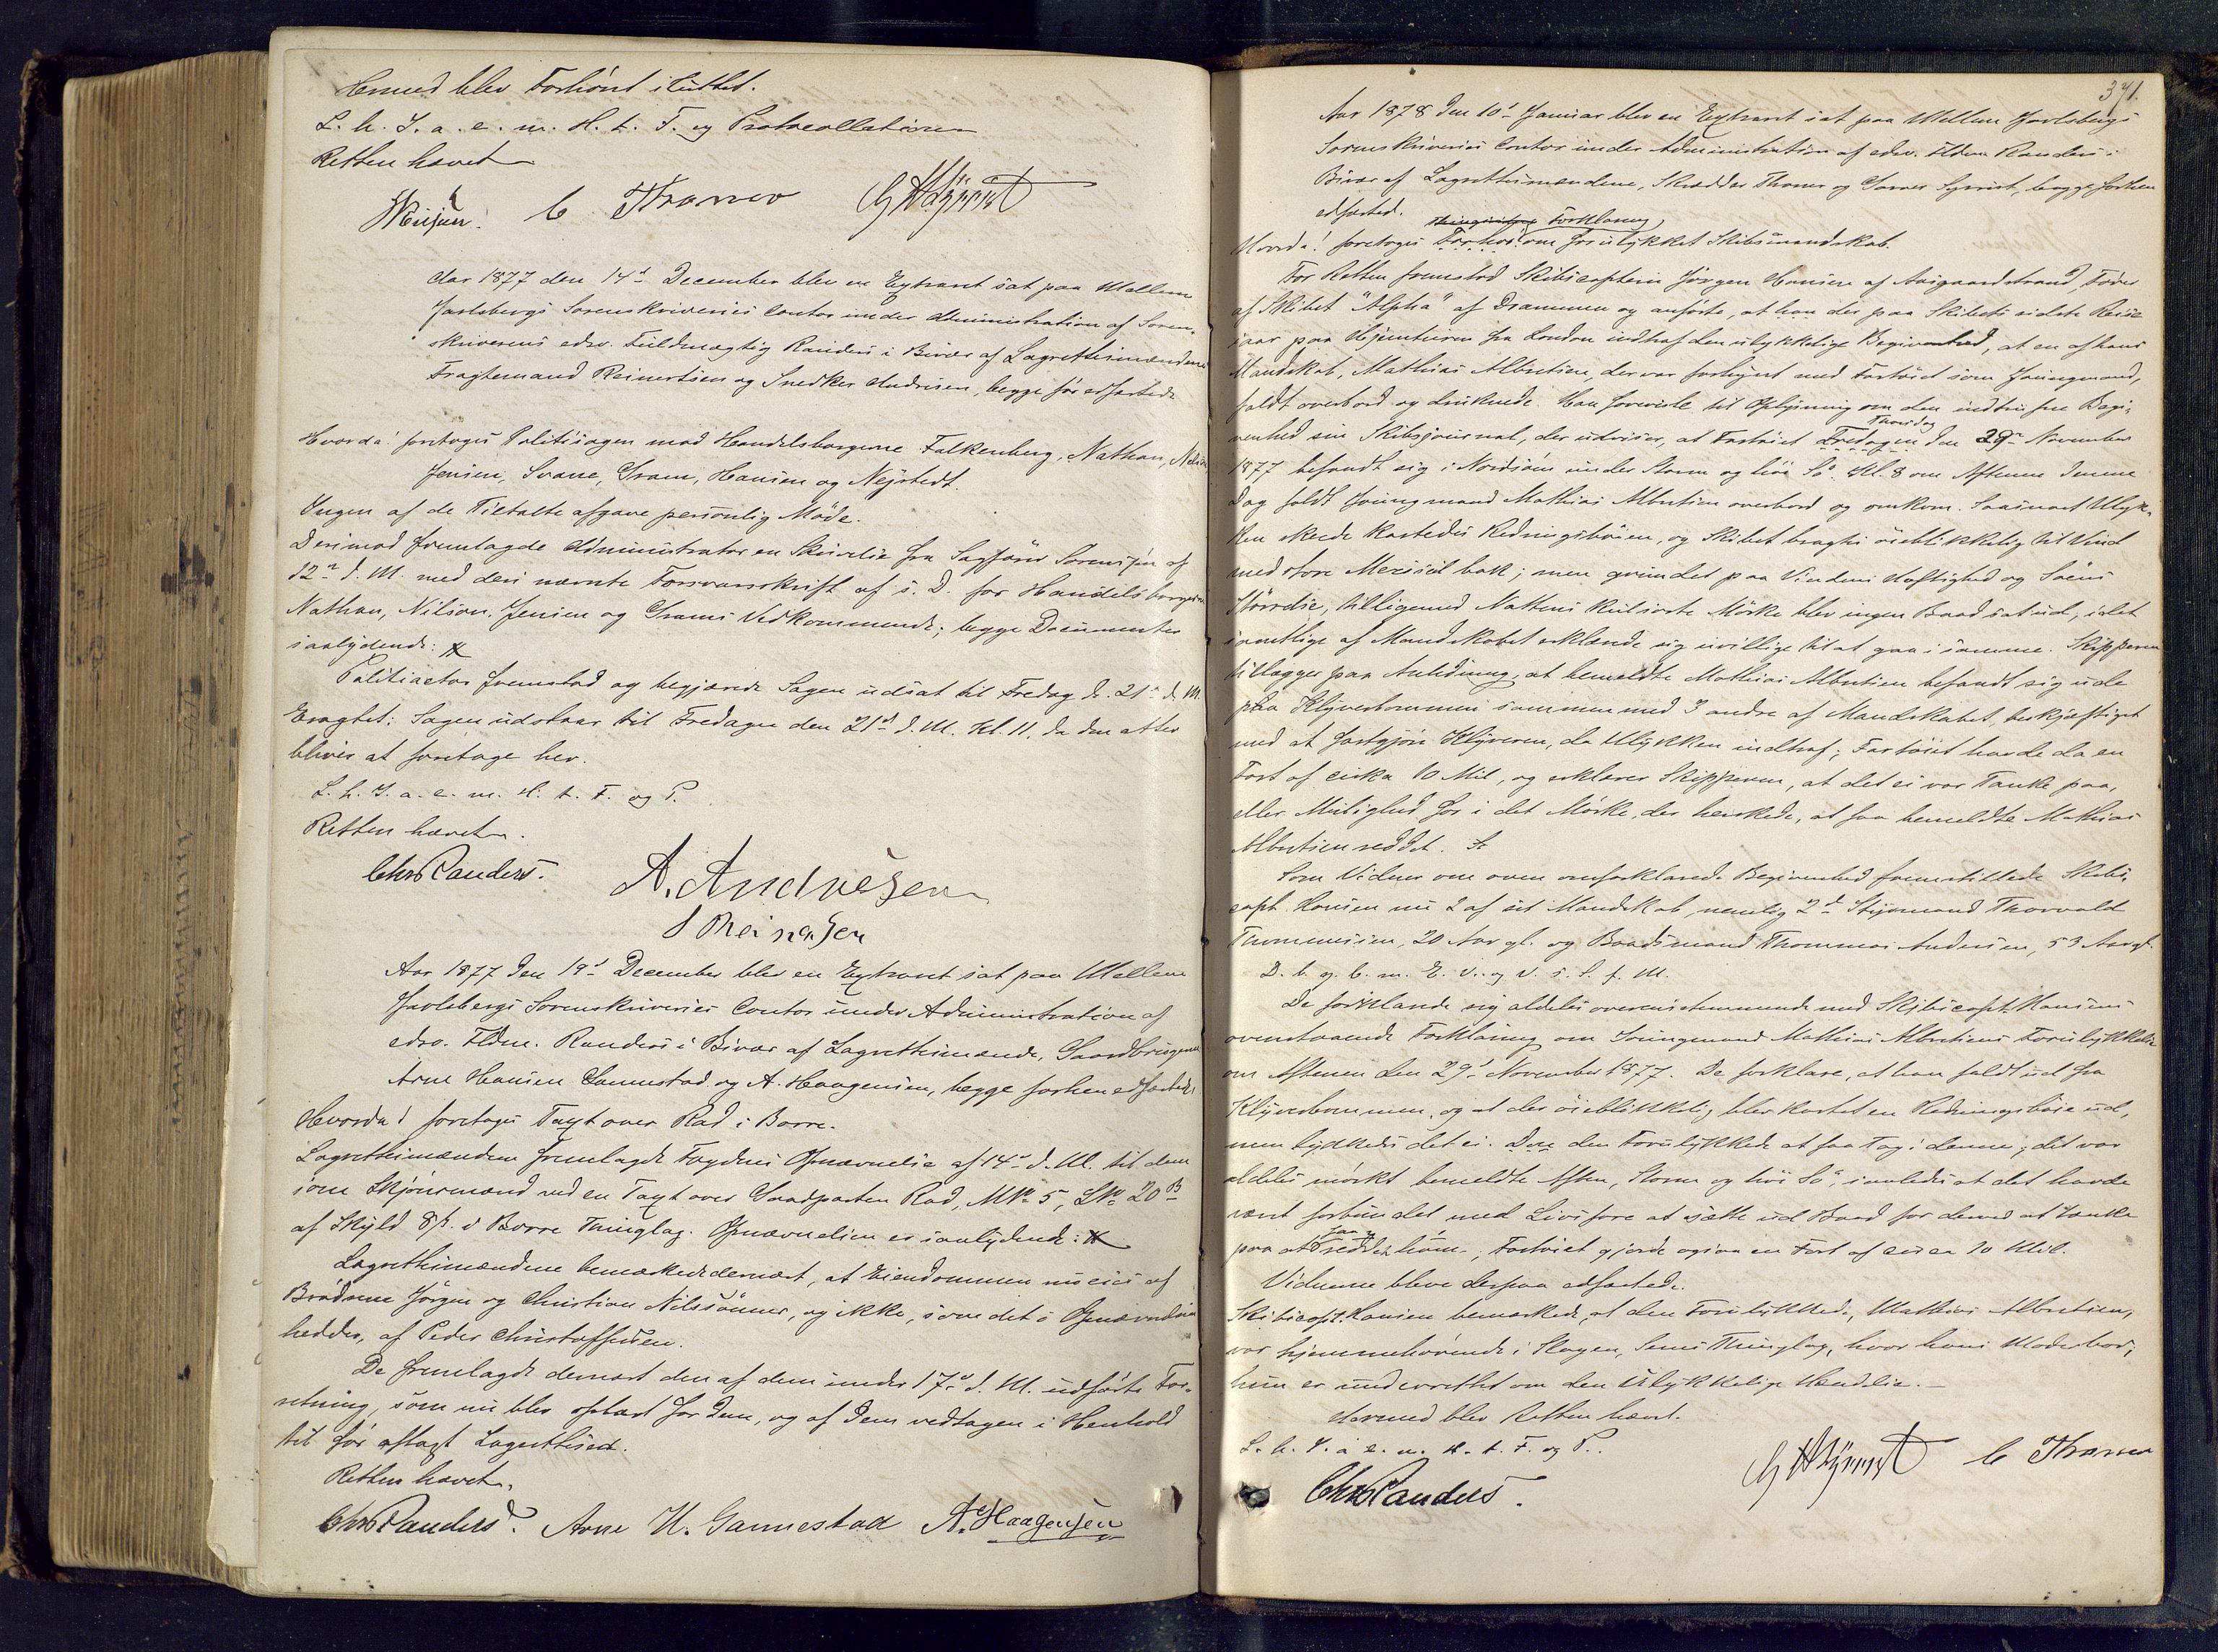 Hermed blev Forhöret sluttet.
L. h. I. a. e. m. H. t. F. og Protocollationen
Retten hævet
C Thranow G H Qvist
Aar 1877 den 14de December blev en Extraret sat paa Mellem
Jarlsbergs Sorenskriveries Contor under Administration af Soren-
skriverens edsv. Fuldmægtig Randers i Bivær af Lagrettesmændene
Fragtemand Reinertsen og Snedker Andresen, begge før edfæstede
Hvorda! foretoges Politisagen mod Handelsborgerne Falkenberg, Nathan, Nilsen
Jensen, Svane, Gram, Hansen og Nejstedt.
Ingen af de Tiltalte afgave personlig Möde.
Derimod fremlagde Administrator en Skrivelse fra Sagförer Sörensen af
12te d. M. med den nævnte Forsvarsskrift af s. D. for Handelsborgerne
Nathan, Nilsen, Jensen og Grams Vedkommende; begge Documenter
saalydende:
Politiactor fremstod og begjærede Sagen udsat til Fredag d. 21de d. M.
Eragtet: Sagen udstaar til Fredagen den 21de d. M. Kl. 11, da den atter
bliver at foretage her.
L. h. I. a. e. m. H. t. F. og P.
Retten hævet.
Chr Randers. A. Andresen
S Reinersen
Aar 1877 den 19de December blev en Extraret sat paa Mellem
Jarlsbergs Sorenskriveries Contor under Administration af
edsv. Fldm. Randers i Bivær af Lagrettesmændene, Gaardbrugerne
Arne Hansen Gannestad og A. Haagensen, begge forhen edfæstede
Hvorda! foretoges Taxt over Rød i Borre.
Lagrettesmændene fremlagde Fogdens Opnævnelse af 14de d. M. til dem
som Skjönsmænd ved en Taxt over Gaardparten Rød, M№ 5, L№ 20 B
af Skyld 8 s. i Borre Thinglag. Opnævnelsen er saalydende:
Lagrettesmændene bemærkede dernæst, at Eiendommen nu eies af
Brödrene Jörgen og Christian Nilssönner, og ikke, som det i Opnævnelsen
heddes, af Peder Christoffersen.
De fremlagde dernæst den af dem under 17de d. M. udförte For-
retning, som nu blev oplæst for dem, og af dem vedtagen i Henhold
til för aflagt Lagrettesed.
Retten hævet.
Chr Randers. Arne H. Gannestad A. Haagensen
371.
Aar 1878 den 10de Januar blev en Extraret sat paa Mellem Jarlsbergs
Sorenskriveries Contor under Administration af edsv. Fldm. Randers i
Bivær af Lagrettesmændene, Skrædder Thranow og Garver Qvist, begge forhen
edfæsted.
Forklaring
Hvorda! foretoges Forhör om forulykket Skibsmandskab.
For Retten fremstod Skibscaptein Jörgen Hansen af Aasgaardstrand, Förer
af Skibet "Alpha" af Drammen og anförte, at han der paa Skibets sidste Reise
iaar paa Hjemturen fra London indtraf den ulykkelige Begivenhed, at en af hans
Mandskab, Mathias Albretsen, der var forhyret med Fartöiet som Jungmand,
faldt overbord og druknede. Han foreviste til Oplysning om den indtrufne Begi-
Thorsdag
venhed sin Skibsjournal, der udviser, at Fartöiet Fredagen den 29de November
1877 befandt sig i Nordsöen under Storm og höi Sö. Kl. 8 om Aftenen denne
Dag faldt Jungmand Mathias Albretsen overbord og omkom. Saasnart Ulyk-
ken skede kastedes Redningsböien, og Skibet bragtes öieblikkelig til Vind
med store Mersseil bak; men grundet paa Vindens Heftighed og Söens
Störrelse, tilligemed Nattens kulsorte Mörke blev ingen Baad sat ud, idet
samtlige af Mandskabet erklærede sig uvillige til at gaa i samme. Skipperen
tillægger paa Anledning, at bemeldte Mathias Albretsen befandt sig ude
paa Klyverbommen sammen med 3 andre af Mandskabet, beskjæftiget
med at fastgjöre Klyveren, da Ulykken indtraf; Fartöiet havde da en
Fart af cirka 10 Mil, og erklærer Skipperen, at det ei var Tanke paa,
eller Mulighed for i det Mörke, der herskede, at faa bemeldte Mathias
Albretsen reddet.
Som Vidner om oven omforklarede Begivenhed fremstillede Skibs-
capt. Hansen nu 2 af sit Mandskab, nemlig 2den Styrmand Thorvald
Thommessen, 20 Aar gl. og Baadsmand Thommas Andersen, 53 Aar gl.
De forklarede sig aldeles overensstemmende med Skibscapt. Hansens
ovenstaaende Forklaring om Jungmand Mathias Albretsens Forulykkelse
om Aftenen den 29de November 1877. De forklare, at han faldt ud fra
Klyverbommen, og at der öieblikkelig blev kastet en Redningsböie ud,
men lykkedes det ei den Forulykkede at faa Tag i denne; det var
aldeles mörkt bemeldte Aften, Storm og höi Sö, saaledes at det havde
været forbundet med Livsfare at sætte ud Baad for derved at tænke
faa
paa at reddet ham; Fartöiet gjorde ogsaa en Fart af circa 10 Mil.
Vidnerne bleve derpaa edfæstede.
Skibscapt. Hansen bemærkede, at den Forulykkede, Mathias Albretsen,
var hjemmehörende i Slagen, Sems Thinglag, hvor hans Moder bor;
hun er underrettet om den ulykkelige Hændelse.
Hermed blev Retten hævet.
L. h. I. a. e. m. H. t. F. og P.
Chr Randers. G H Qvist C Thranow